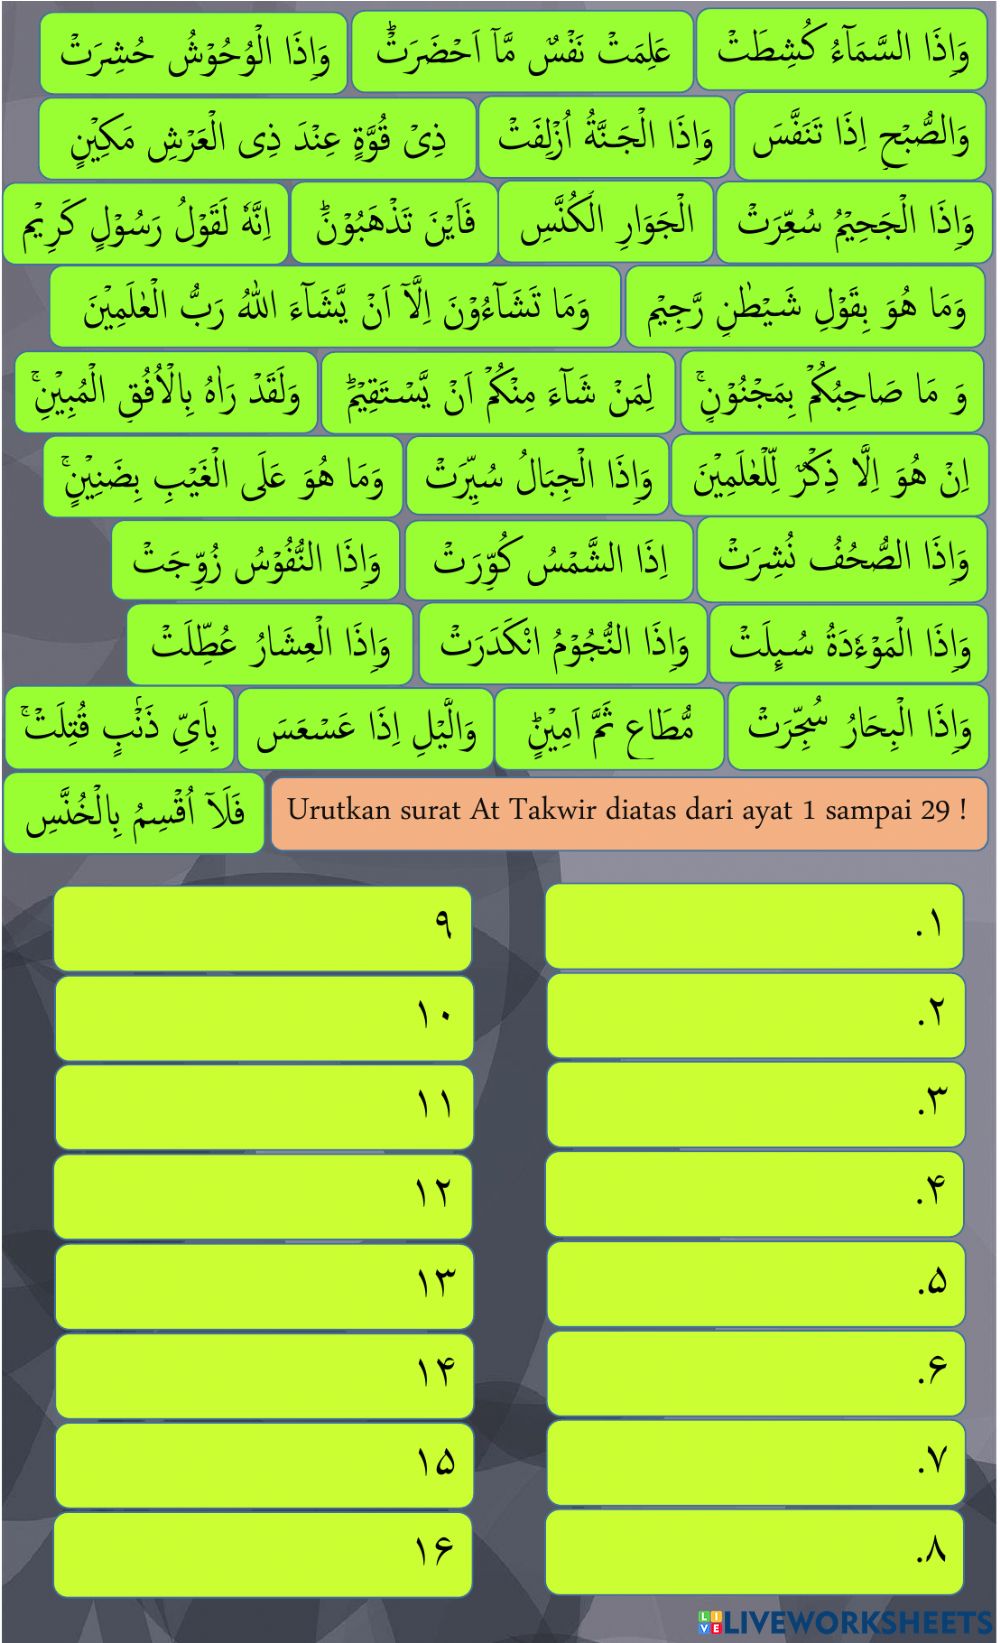 وَاِذَا السَّمَآءُ كُشِطَتْ عَلِمَتْ نَفْسٌ مَّآ اَحْضَرَتْۗ وَاِذَا الْوُحُوْشُ حُشِرَتْ
وَالصُّبْحِ اِذَا تَنَفَّسَ وَاِذَا الْجَنَّةُ اُزْلِفَتْ ذِيْ قُوَّةٍ عِنْدَ ذِى الْعَرْشِ مَكِيْنٍ
وَاِذَا الْجَحِيْمُ سُعِّرَتْ الْجَوَارِ الْكُنَّسِ فَاَيْنَ تَذْهَبُوْنَۗ اِنَّهٗ لَقَوْلُ رَسُوْلٍ كَرِيْمٍ
وَمَا هُوَ بِقَوْلِ شَيْطٰنٍ رَّجِيْمٍ وَمَا تَشَآءُوْنَ اِلَّآ اَنْ يَّشَآءَ اللّٰهُ رَبُّ الْعٰلَمِيْنَ
وَ مَا صَاحِبُكُمْ بِمَجْنُوْنٍۚ لِمَنْ شَآءَ مِنْكُمْ اَنْ يَّسْتَقِيْمَۗ وَلَقَدْ رَاٰهُ بِالْاُفُقِ الْمُبِيْنِۚ
اِنْ هُوَ اِلَّا ذِكْرٌ لِّلْعٰلَمِيْنَ وَاِذَا الْجِبَالُ سُيِّرَتْ وَمَا هُوَ عَلَى الْغَيْبِ بِضَنِيْنٍۚ
وَاِذَا الصُّحُفُ نُشِرَتْ اِذَا الشَّمْسُ كُوِّرَتْ وَاِذَا النُّفُوْسُ زُوِّجَتْ
وَاِذَا الْمَوْءٗدَةُ سُىِٕلَتْ وَاِذَا النُّجُوْمُ انْكَدَرَتْ وَاِذَا الْعِشَارُ عُطِّلَتْ
وَاِذَا الْبِحَارُ سُجِّرَتْ مُّطَاعٍ ثَمَّ اَمِيْنٍۗ وَالَّيْلِ اِذَا عَسْعَسَ بِاَيِّ ذَنْۢبٍ قُتِلَتْۚ
فَلَآ اُقْسِمُ بِالْخُنَّسِ
Urutkan surat At Takwir diatas dari ayat 1 sampai 29 !
۱.
۲.
۳.
۴.
۵.
۶.
۷.
۸.
۹
۱۰
۱۱
۱۲
۱۳
۱۴
۱۵
۱۶
LIVE LIVEWORKSHEETS